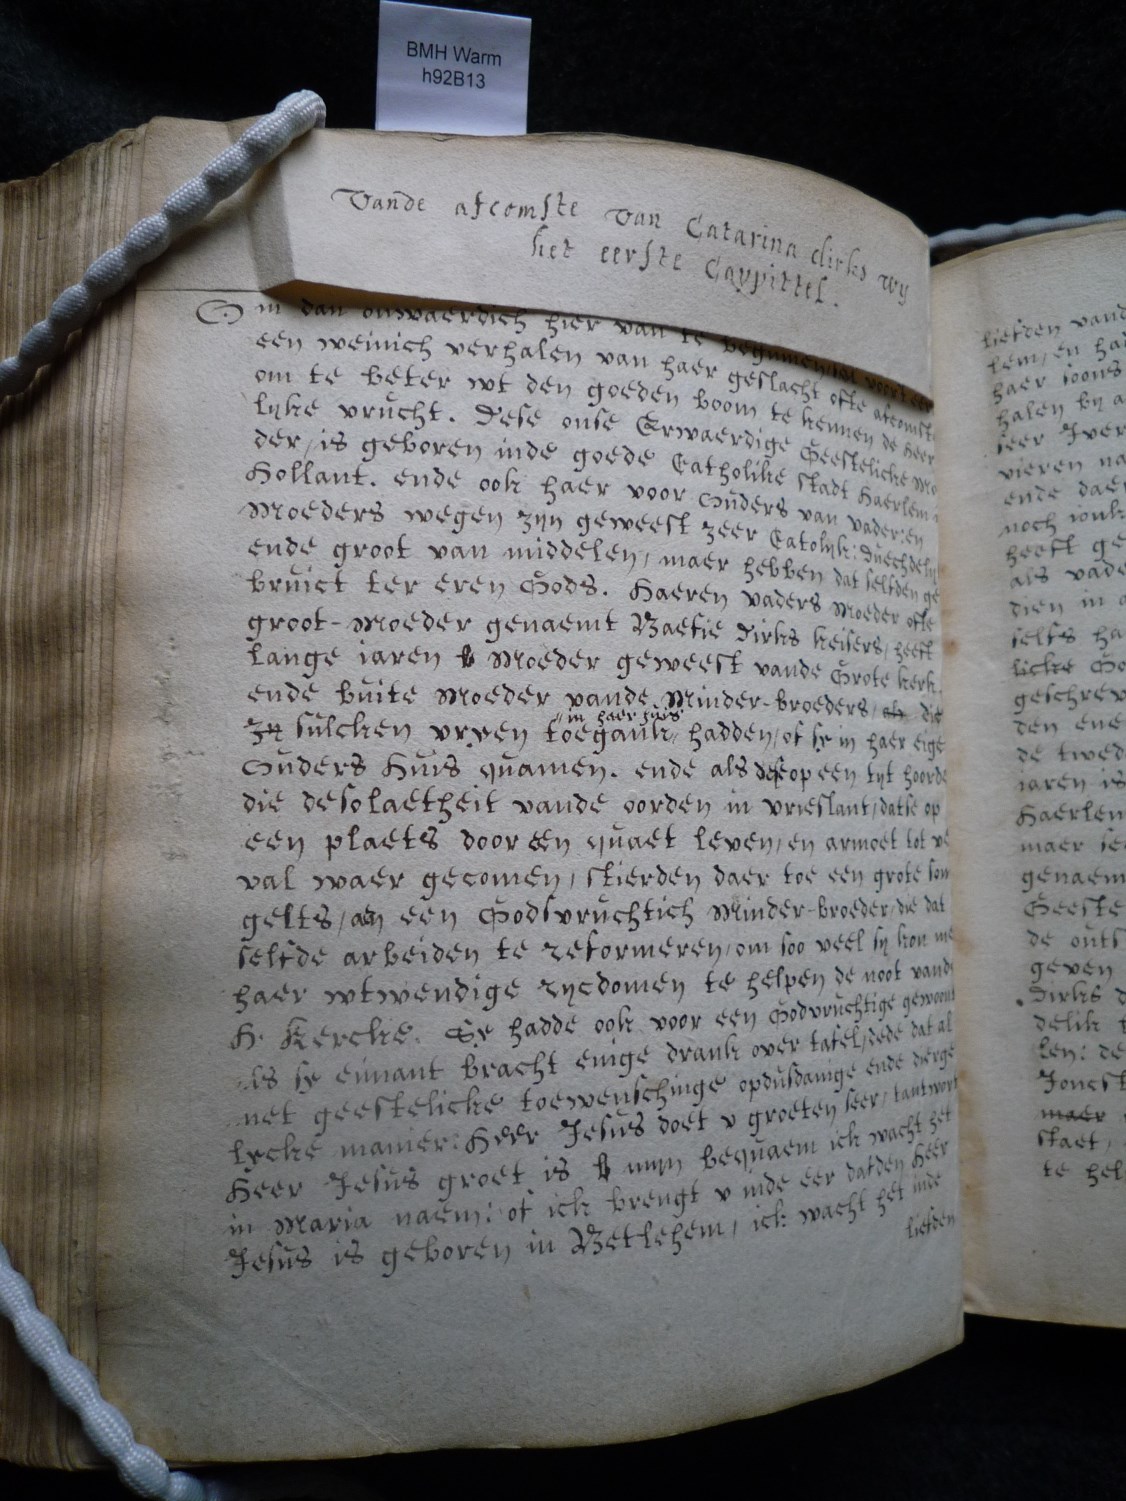 BMH Warm
h92B13
Vande afcomste van Catarina dirks wy
het eerste Cappittel.
Om dan onwaerdich hier van te beginnen, sal voort eerst
een weinich verhalen van haer geslacht ofte afcomste
om te beter wt den goeden boom te kennen de heer
lijke vrucht. Dese onse Eerwaerdige Geestelicke Mo
der, is geboren inde goede Catholike stadt Haerlem
Hollant. ende ook haer voor Ouders van vader: en
Moeders wegen zijn geweest zeer Catolijk: Duechdelijk
ende groot van middelen, maer hebben dat selfden ge
bruict ter eren Gods. Haeren vaders Moeder ofte
groot-Moeder genaemt Baefie Dirks keisers, heeft
lange iaren Moeder geweest vande Grote kerk,
ende buite Moeder vande Minder-broeders, die
in haer huis
sulcken vryen toegank, hadden, of sy in haer eige
Ouders Huis quamen. ende als dese op een tijt hoorde
die desolaetheit vande oorden in vrieslant, datse op
een plaets door een quaet leven, en armoet tot ver
val waer gecomen, stierden daer toe een grote som
gelts, aen een Godsvruchtich Minder-broeder, die dat
selfde arbeiden te reformeren, om soo veel sy kon met
haer wtwendige rycdomen te helpen de noot vande
H. Kercke. Sy hadde ook voor een Godvruchtige gewoont
als sy eimant bracht enige drank over tafel, dede dat al
met geestelicke toewenschinge opdusdanige ende dierge
lycke manier: Heer Jesus doet v groeten seer, tantwort
Heer Jesus groet is mijn bequaem ick wacht het
in Maria naem: of ick brengt v inde eer datden Heer
Jesus is geboren in Betlehem, ick wacht het inde
liefden
liefden vand
lem, en had
haer soons
halen bij a
seer Jver
vieren na
ende daer
noch ionk
heeft ge
als vade
dien in
selfs ha
licke Go
geschrev
den ene
de twed
iaren is
Haerlem
maer se
genaem
Geeste
de outs
geven
Dirks d
delik
len: de
Jonest
maer
staet,
te hel